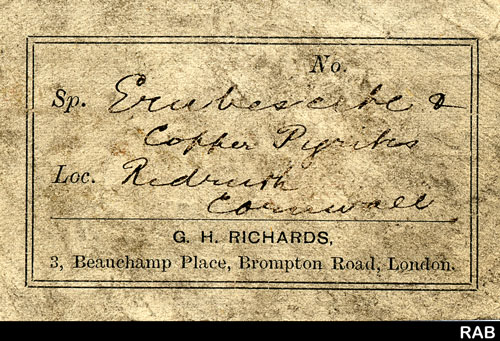 No.
Sp. Erubescite &
Copper Pyrites
Loc. Redruth
Cornwall
G. H. RICHARDS,
3, Beauchamp Place, Brompton Road, London.
RAB